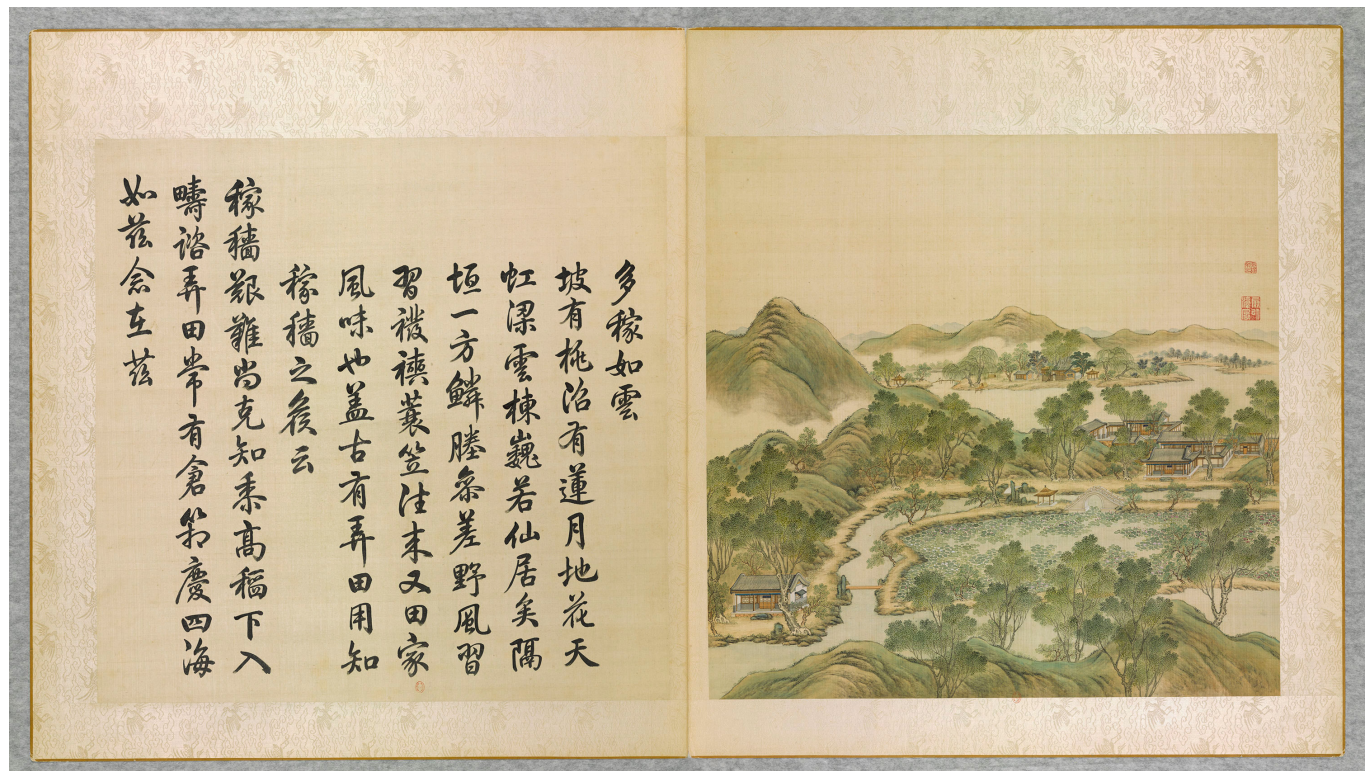 多稼如雲
坡有桃沼有蓮月地花天
虹梁雲棟巍若仙居矣隔
垣一方鱗塍參差野風習
習襏襫蓑笠往来又田家
風味也盖古有弄田用知
稼穡之候云
稼穡艱難尚克知黍高稻下入
疇諮弄田常有倉箱慶四海
如茲念在茲